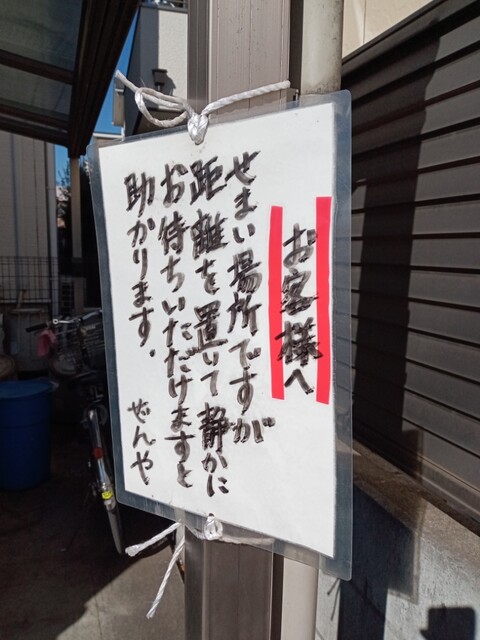 お客様へ
せまい場所ですが
距離を置いて静かに
お待ちいただけますと
助かります.
ぜんや